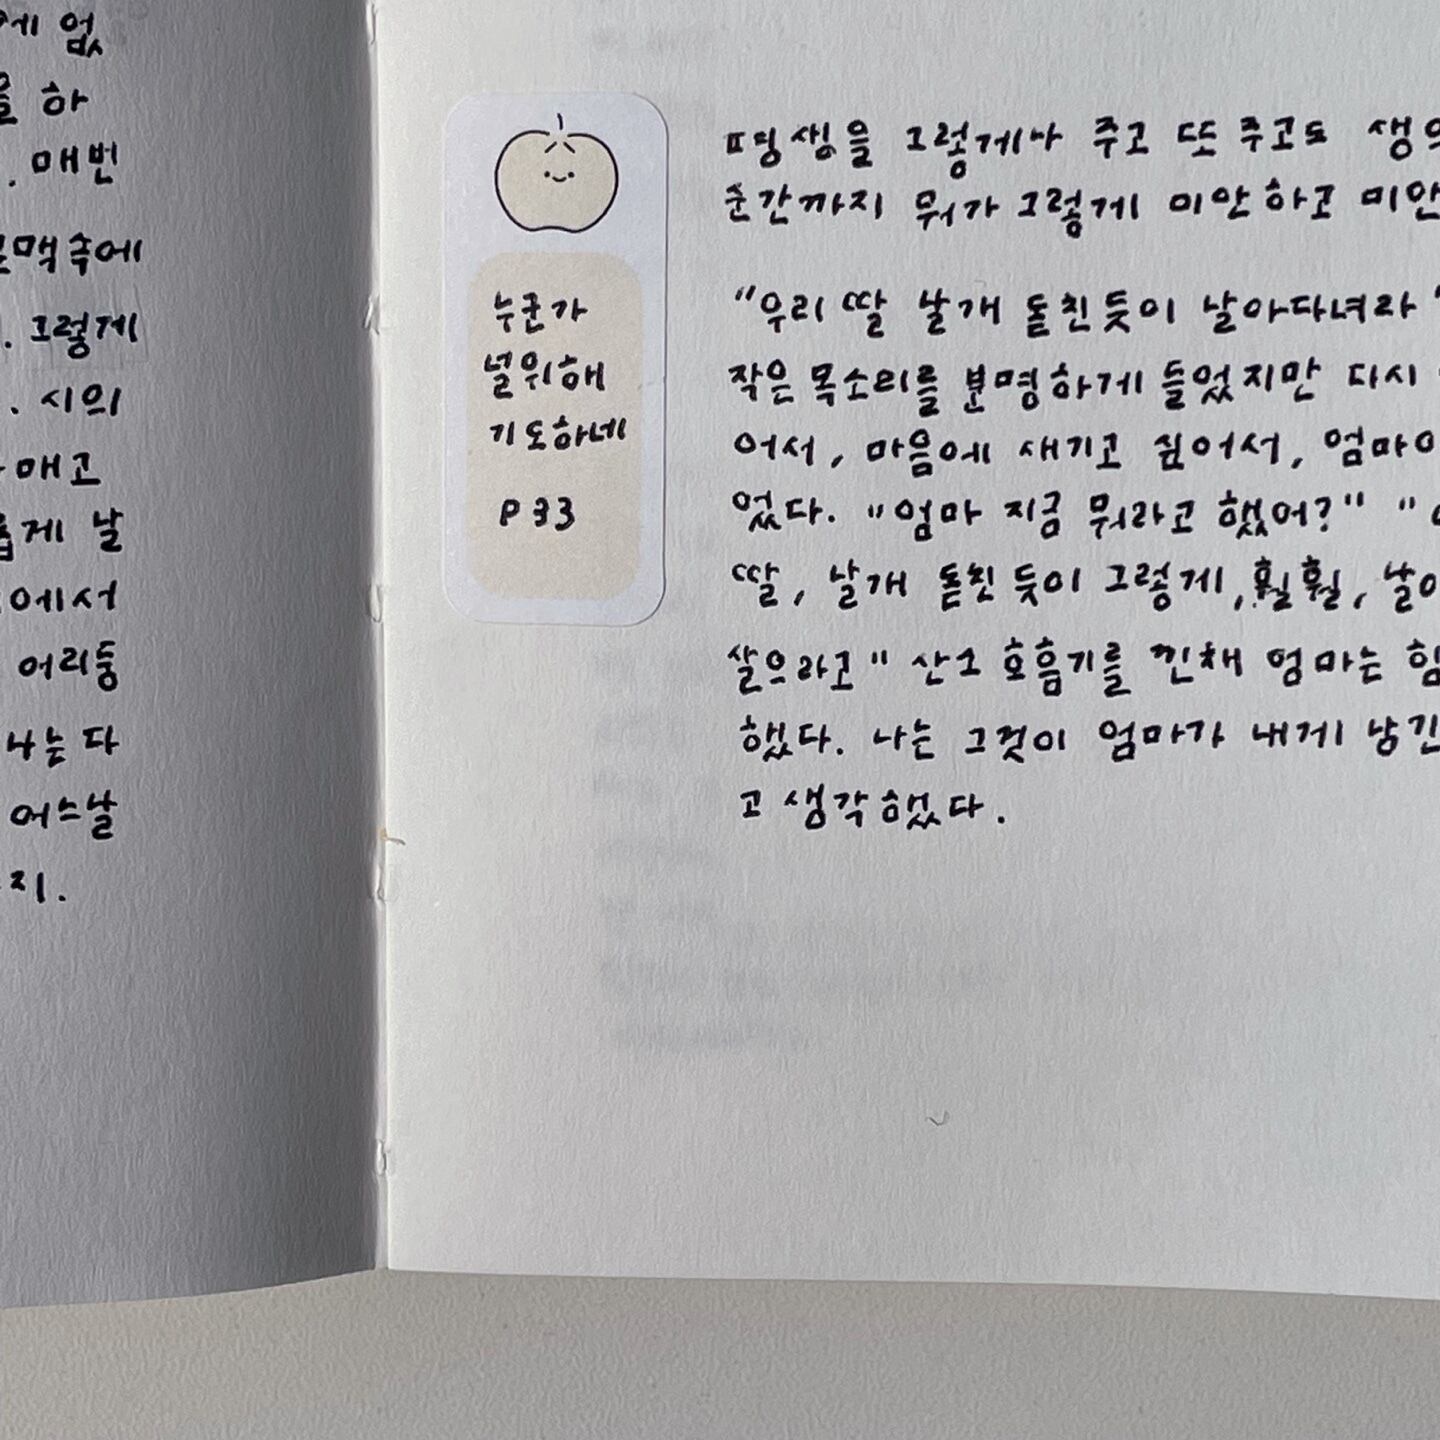 에 없
를 하
. 매번
맥속에
. 그렇게
. 시의
매고
롭게 날
에서
어리둥
나는 다
어스날
지.
누군가
널위해
기도하네
P 33
평생을 그렇게나 주고 또 주고도 생의
순간까지 뭐가 그렇게 미안하고 미안
"우리 딸 날개 돋친듯이 날아다녀라"
작은 목소리를 분명하게 들었지만 다시
어서, 마음에 새기고 싶어서, 엄마에
었다. "엄마 지금 뭐라고 했어?" "
딸, 날개 돋친 듯이 그렇게, 훨훨, 날아
살으라고" 산소 호흡기를 낀채 엄마는 힘
했다. 나는 그것이 엄마가 내게 남긴
고 생각했다.